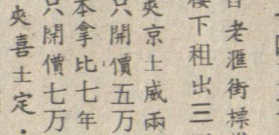 百老滙街標
樓下租出三
夾京士威兩
只開價五万
本拿比七年
只開價七万
夾喜士定·